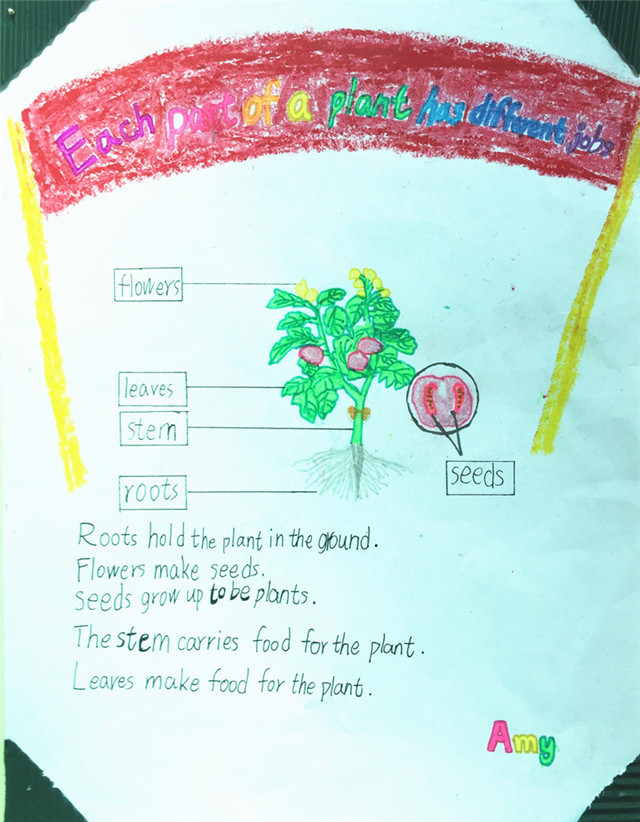 Each part of a plant has different jobs
flowers
leaves
stem
roots
seeds
Roots hold the plant in the ground.
Flowers make seeds.
Seeds grow up to be plants.
The stem carries food for the plant.
Leaves make food for the plant.
Amy